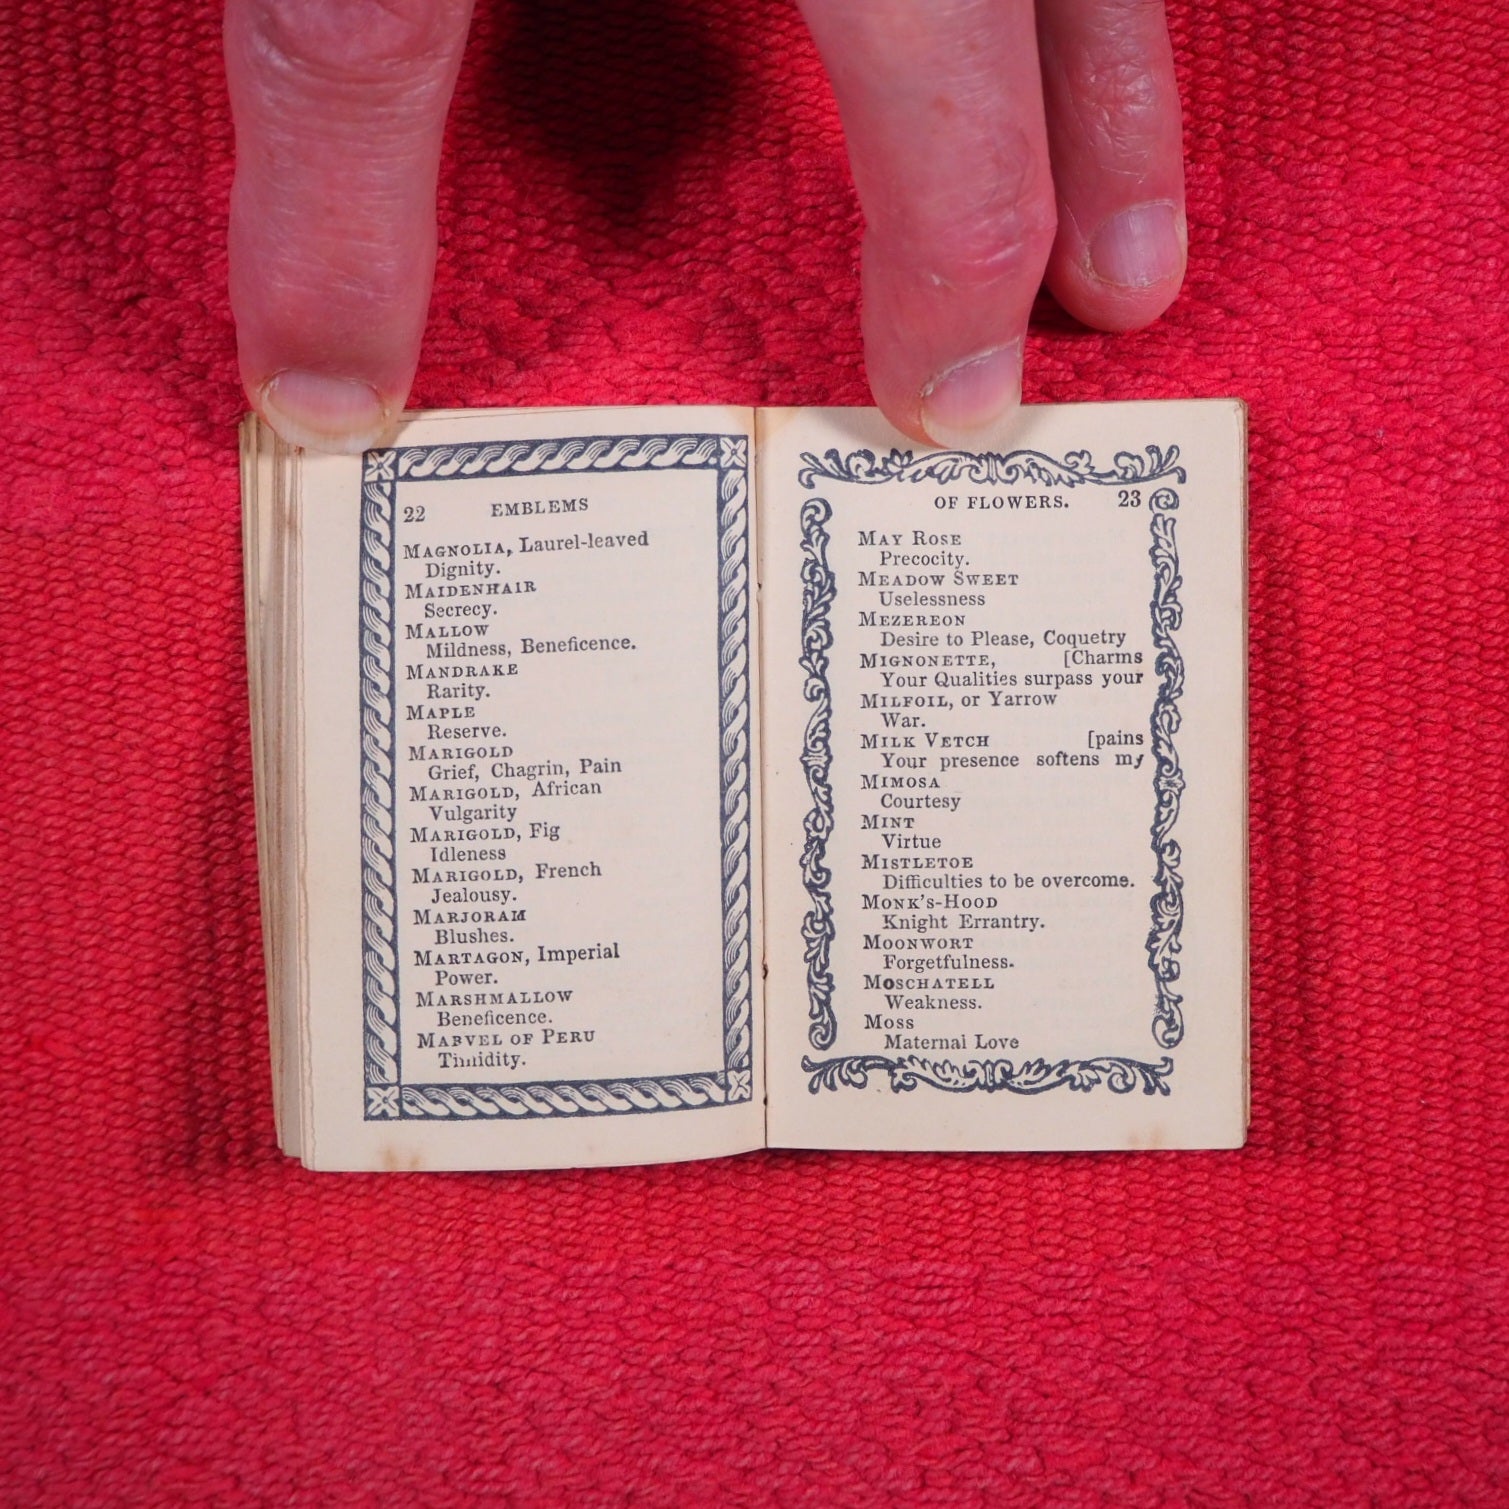 22 EMBLEMS
MAGNOLIA, Laurel-leaved
Dignity.
MAIDENHAIR
Secrecy.
MALLOW
Mildness, Beneficence.
MANDRAKE
Rarity.
MAPLE
Reserve.
MARIGOLD
Grief, Chagrin, Pain
MARIGOLD, African
Vulgarity
MARIGOLD, Fig
Idleness
MARIGOLD, French
Jealousy.
MARJORAM
Blushes.
MARTAGON, Imperial
Power.
MARSHMALLOW
Beneficence.
MARVEL OF PERU
Timidity.
OF FLOWERS. 23
MAY ROSE
Precocity.
MEADOW SWEET
Uselessness
MEZEREON
Desire to Please, Coquetry
MIGNONETTE, [Charms
Your Qualities surpass your
MILFOIL, or Yarrow
War.
MILK VETCH [pains
Your presence softens my
MIMOSA
Courtesy
MINT
Virtue
MISTLETOE
Difficulties to be overcome.
MONK'S-HOOD
Knight Errantry.
MOONWORT
Forgetfulness.
MOSCHATELL
Weakness.
MOSS
Maternal Love